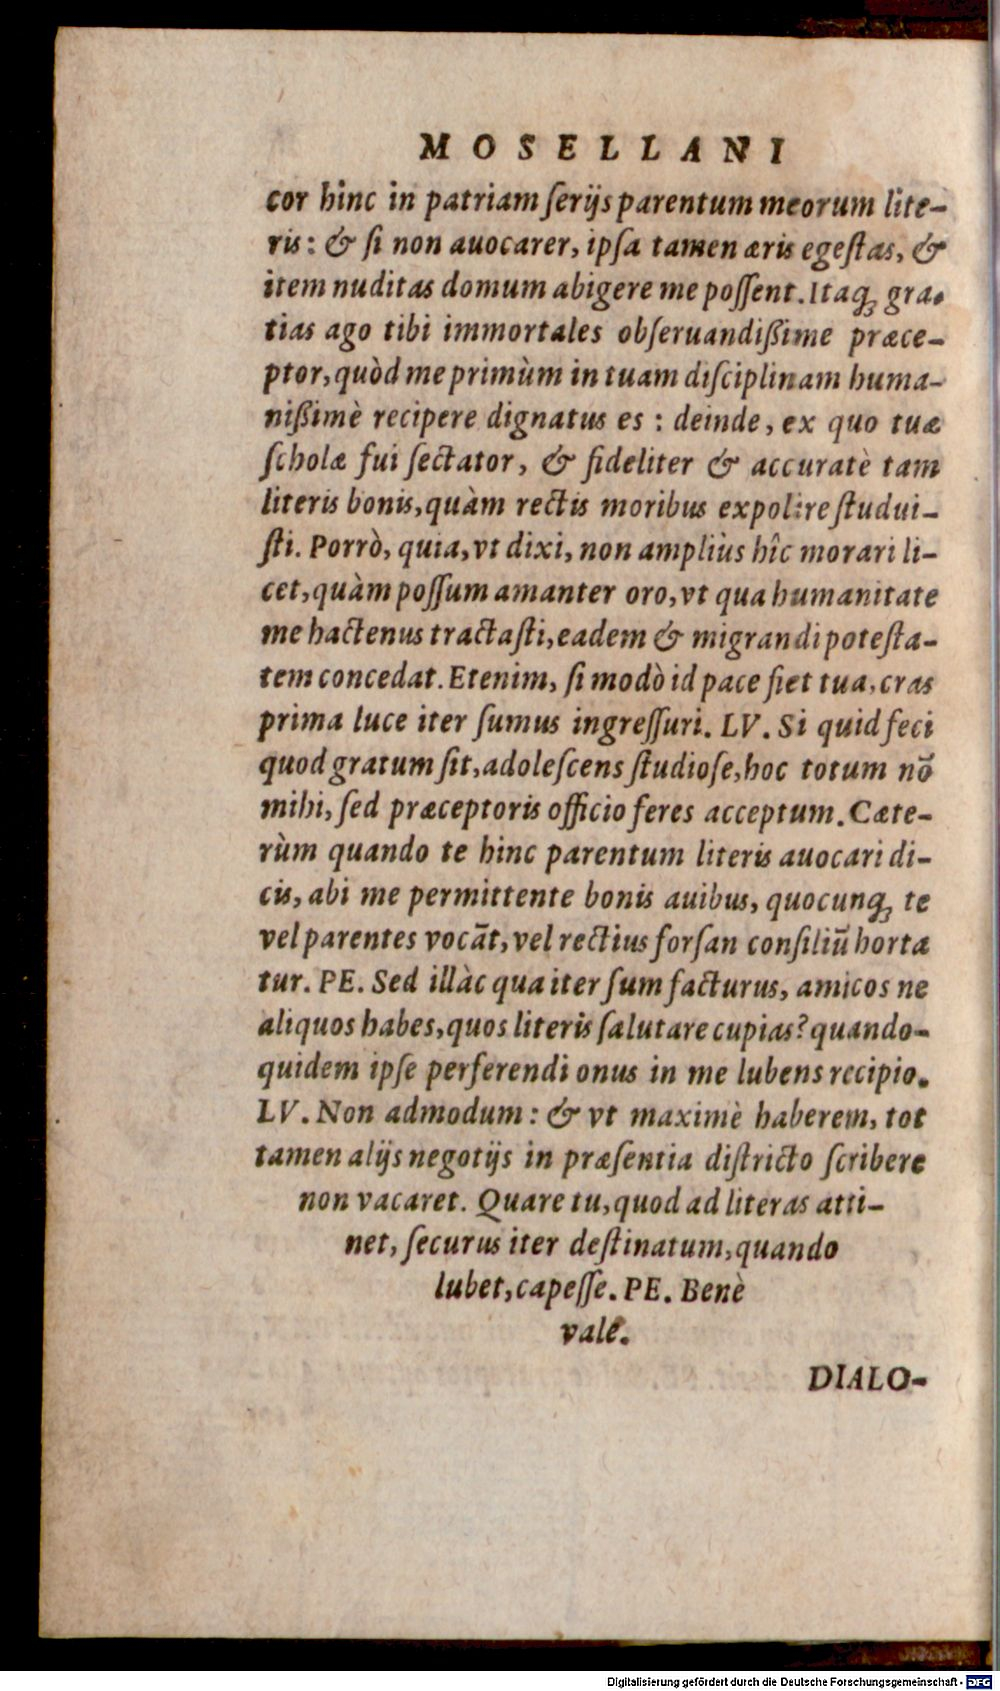 MOSELLANI
cor hinc in patriam ſerijs parentum meorum lite-
ris: & ſi non auocarer, ipſa tamen æris egeſtas, &
item nuditas domum abigere me poſſent. Itaq́ꝫ gra-
tias ago tibi immortales obſeruandißime præce-
ptor, quòd me primùm in tuam diſciplinam huma-
nißimè recipere dignatus es: deinde, ex quo tuæ
ſcholæ fui ſectator, & fideliter & accuratè tam
literis bonis, quàm rectis moribus expolire ſtudui-
ſti. Porrò, quia, vt dixi, non ampliùs hîc morari li-
cet, quàm poſſum amanter oro, vt qua humanitate
me hactenus tractaſti, eadem & migrandi poteſta-
tem concedat. Etenim, ſi modò id pace fiet tua, cras
prima luce iter ſumus ingreſſuri. LV. Si quid feci
quod gratum ſit, adoleſcens ſtudioſe, hoc totum nō
mihi, ſed præceptoris officio feres acceptum. Cæte-
rùm quando te hinc parentum literis auocari di-
cis, abi me permittente bonis auibus, quocunq́ꝫ te
vel parentes vocāt, vel rectius forſan conſiliū horta
tur. PE. Sed illàc qua iter ſum facturus, amicos ne
aliquos habes, quos literis ſalutare cupias? quando-
quidem ipſe perferendi onus in me lubens recipio.
LV. Non admodum: & vt maximè haberem, tot
tamen alijs negotijs in præſentia diſtricto ſcribere
non vacaret. Quare tu, quod ad literas atti-
net, ſecurus iter deſtinatum, quando
lubet, capeſſe. PE. Benè
vale.
DIALO-
Digitalisierung gefördert durch die Deutsche Forschungsgemeinschaft - DFG